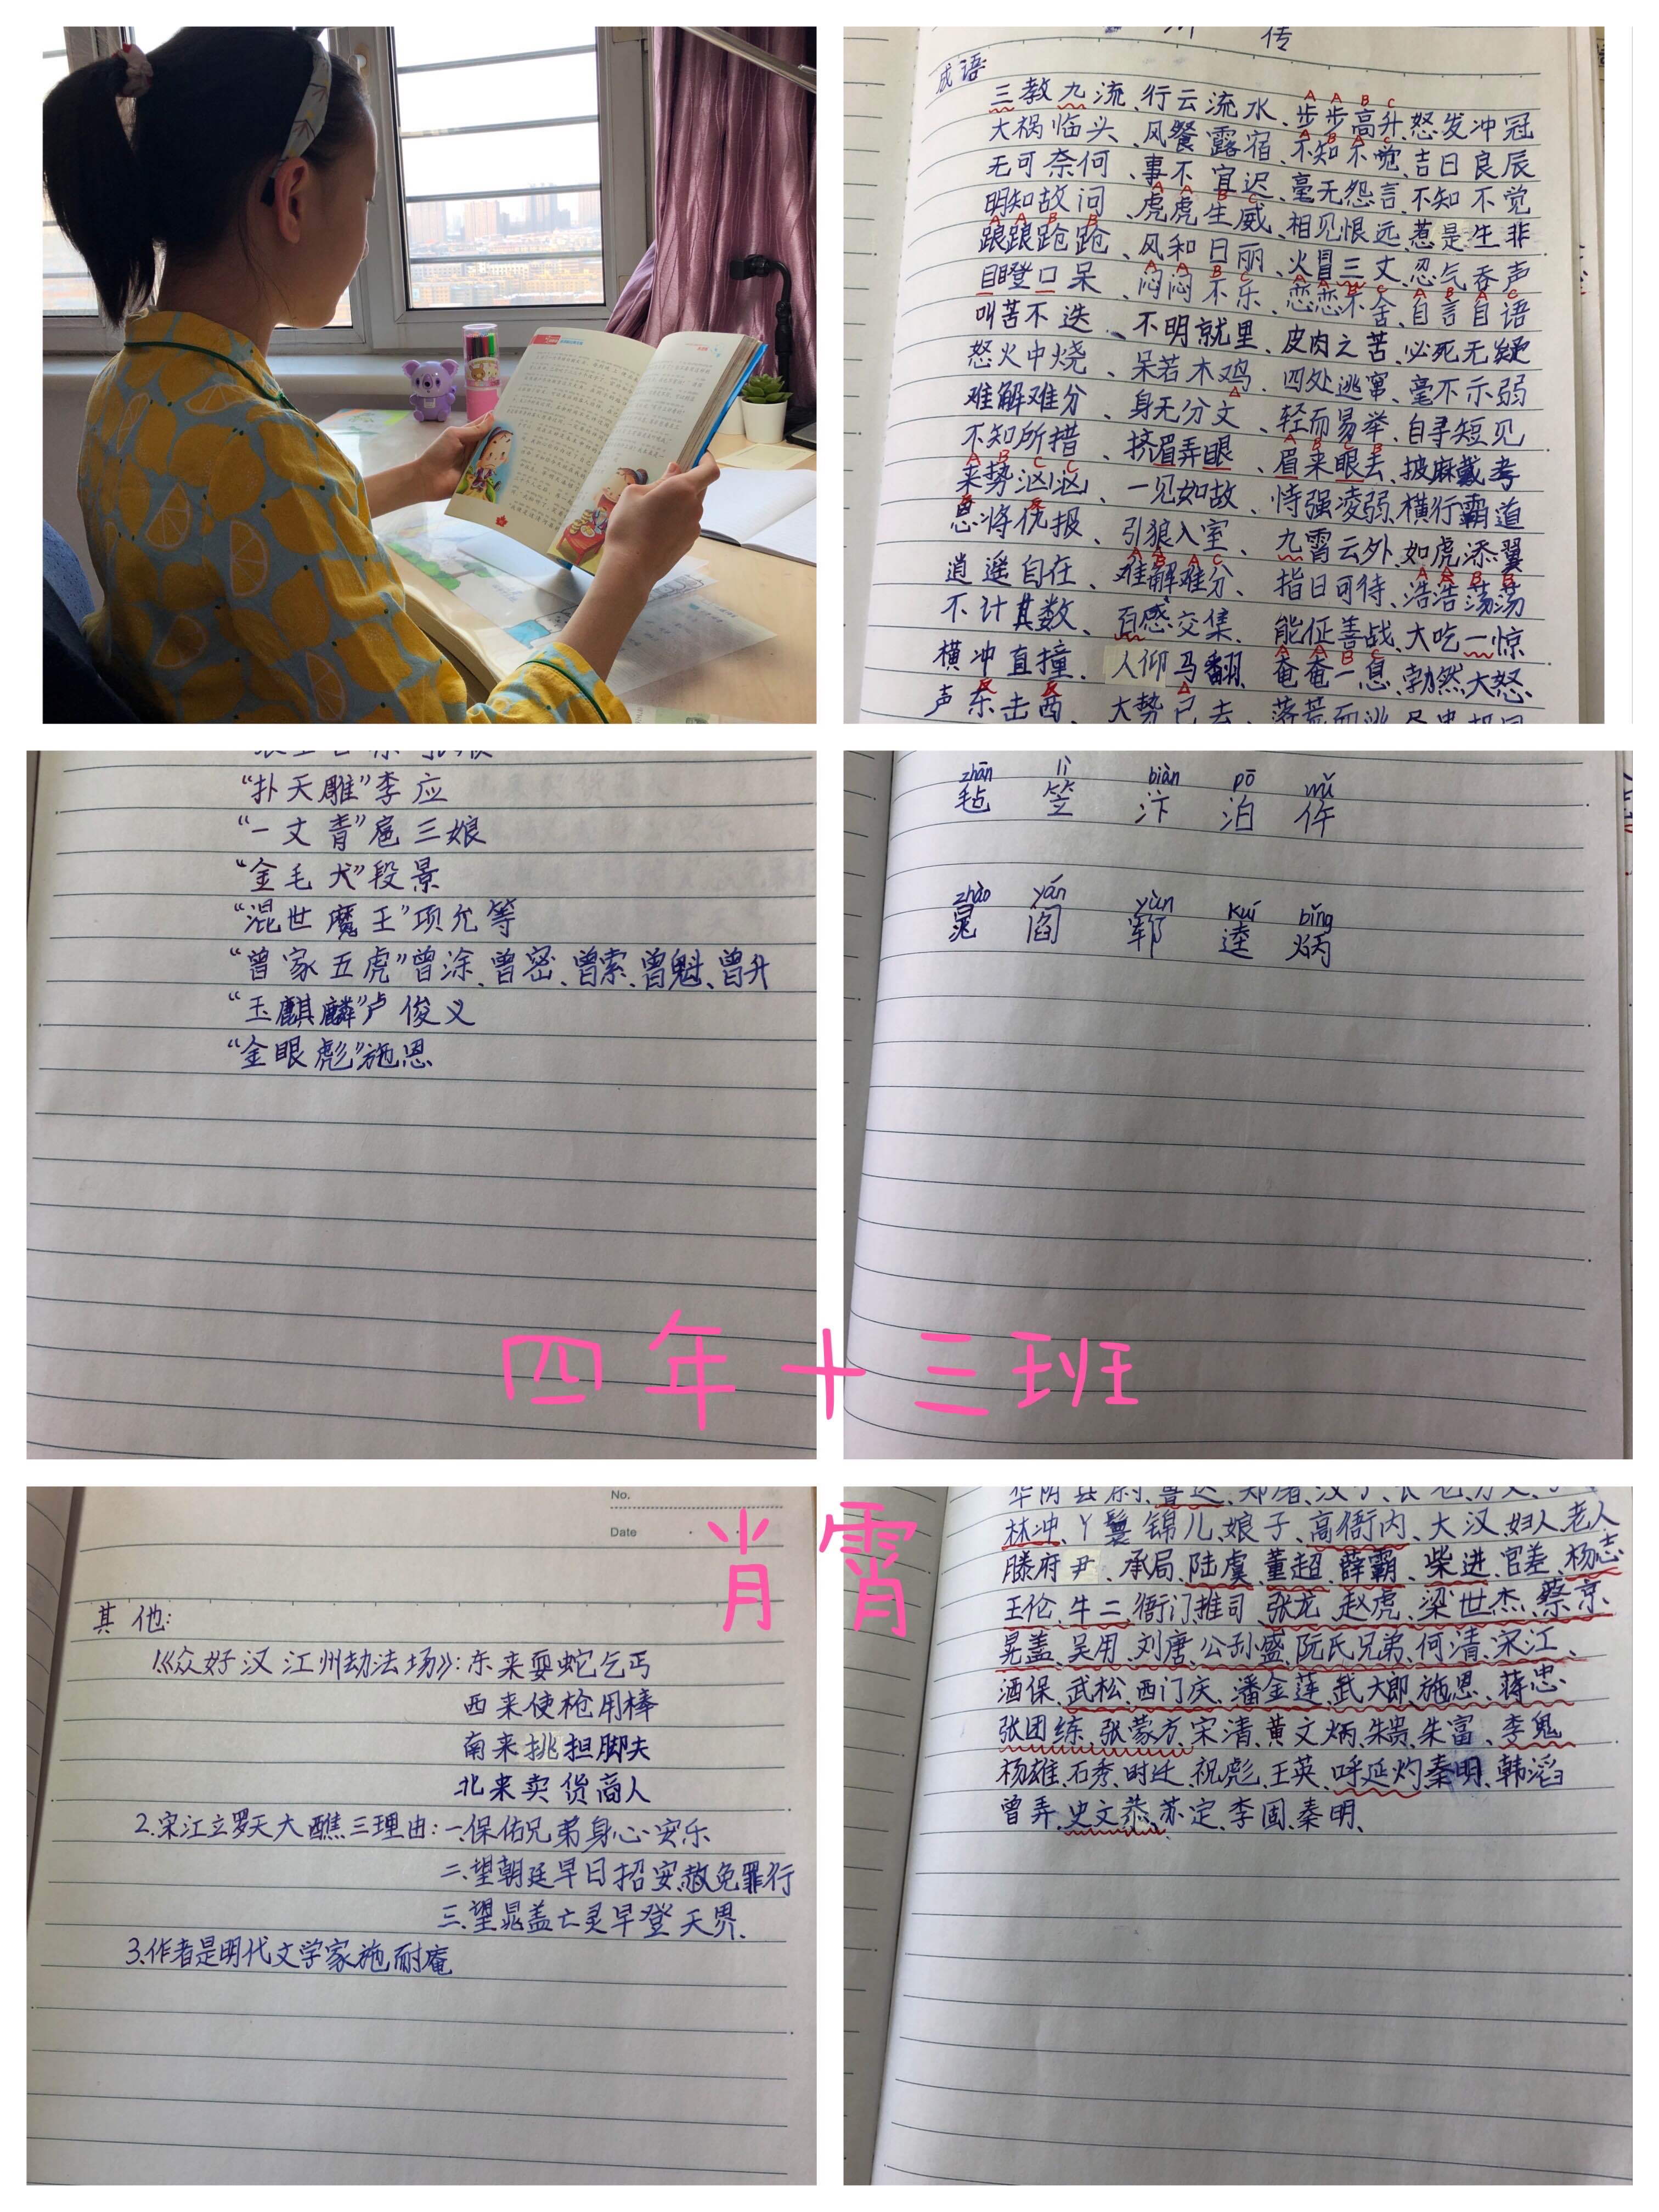 传
成语
三教九流、行云流水、步步高升、怒发冲冠
大祸临头、风餐露宿、不知不觉、吉日良辰
无可奈何、事不宜迟、毫无怨言、不知不觉
明知故问、虎虎生威、相见恨远、惹是生非
踉踉跄跄、风和日丽、火冒三丈、忍气吞声
目瞪口呆、闷闷不乐、恋恋不舍、自言自语
叫苦不迭、不明就里、皮肉之苦、必死无疑
怒火中烧、呆若木鸡、四处逃窜、毫不示弱
难解难分、身无分文、轻而易举、自寻短见
不知所措、挤眉弄眼、眉来眼去、披麻戴孝
来势汹汹、一见如故、恃强凌弱、横行霸道
恩将仇报、引狼入室、九霄云外、如虎添翼
逍遥自在、难解难分、指日可待、浩浩荡荡
不计其数、百感交集、能征善战、大吃一惊
横冲直撞、人仰马翻、奄奄一息、勃然大怒、
声东击西、大势已去、落荒而逃
“扑天雕”李应
“一丈青”扈三娘
“金毛犬”段景
“混世魔王”项允等
“曾家五虎”曾涂、曾密、曾索、曾魁、曾升
“玉麒麟”卢俊义
“金眼彪”施恩
zhān lì biàn pō mǔ
毡 笠 汴 泊 仵
zhào yán yùn kuí bǐng
晁 阎 郓 逵 炳
四年十三班
肖霄
No.
Date
其他:
1.《众好汉江州劫法场》:东来耍蛇乞丐
西来使枪用棒
南来挑担脚夫
北来卖货商人
2.宋江立罗天大醮三理由:一.保佑兄弟身心安乐
二.望朝廷早日招安,赦免罪行
三.望晁盖亡灵早登天界.
3.作者是明代文学家施耐庵
华阴县尉、鲁达、郑屠、
林冲、丫鬟锦儿、娘子、高衙内、大汉、妇人、老人
滕府尹、承局、陆虞、董超、薛霸、柴进、官差、杨志
王伦、牛二、衙门推司、张龙、赵虎、梁世杰、蔡京
晃盖、吴用、刘唐、公孙盛、阮氏兄弟、何清、宋江、
酒保、武松、西门庆、潘金莲、武大郎、施恩、蒋忠
张团练、张蒙方、宋清、黄文炳、朱贵、朱富、李鬼
杨雄、石秀、时迁、祝彪、王英、呼延灼、秦明、韩滔
曾弄、史文恭、苏定、李固、秦明、